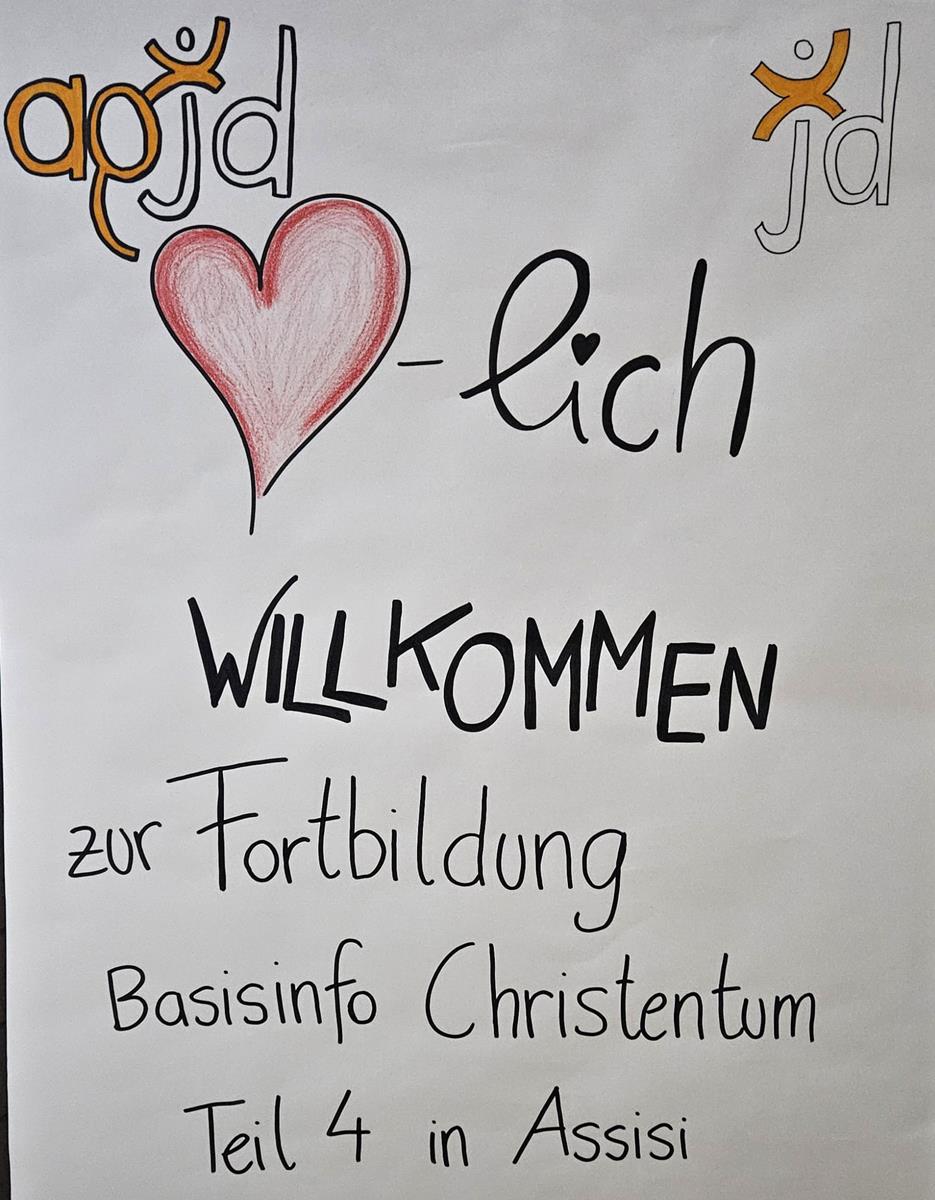 apjd
jd
-lich
WILLKOMMEN
zur Fortbildung
Basisinfo Christentum
Teil 4 in Assisi